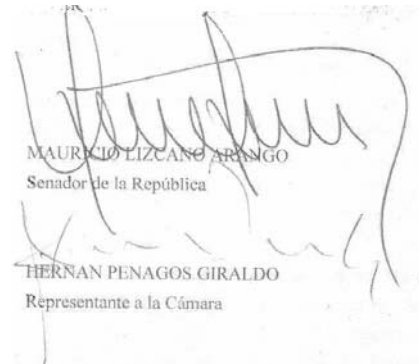 MAURICIO LIZCANO ARANGO
Senador de la República
HERNAN PENAGOS GIRALDO
Representante a la Cámara